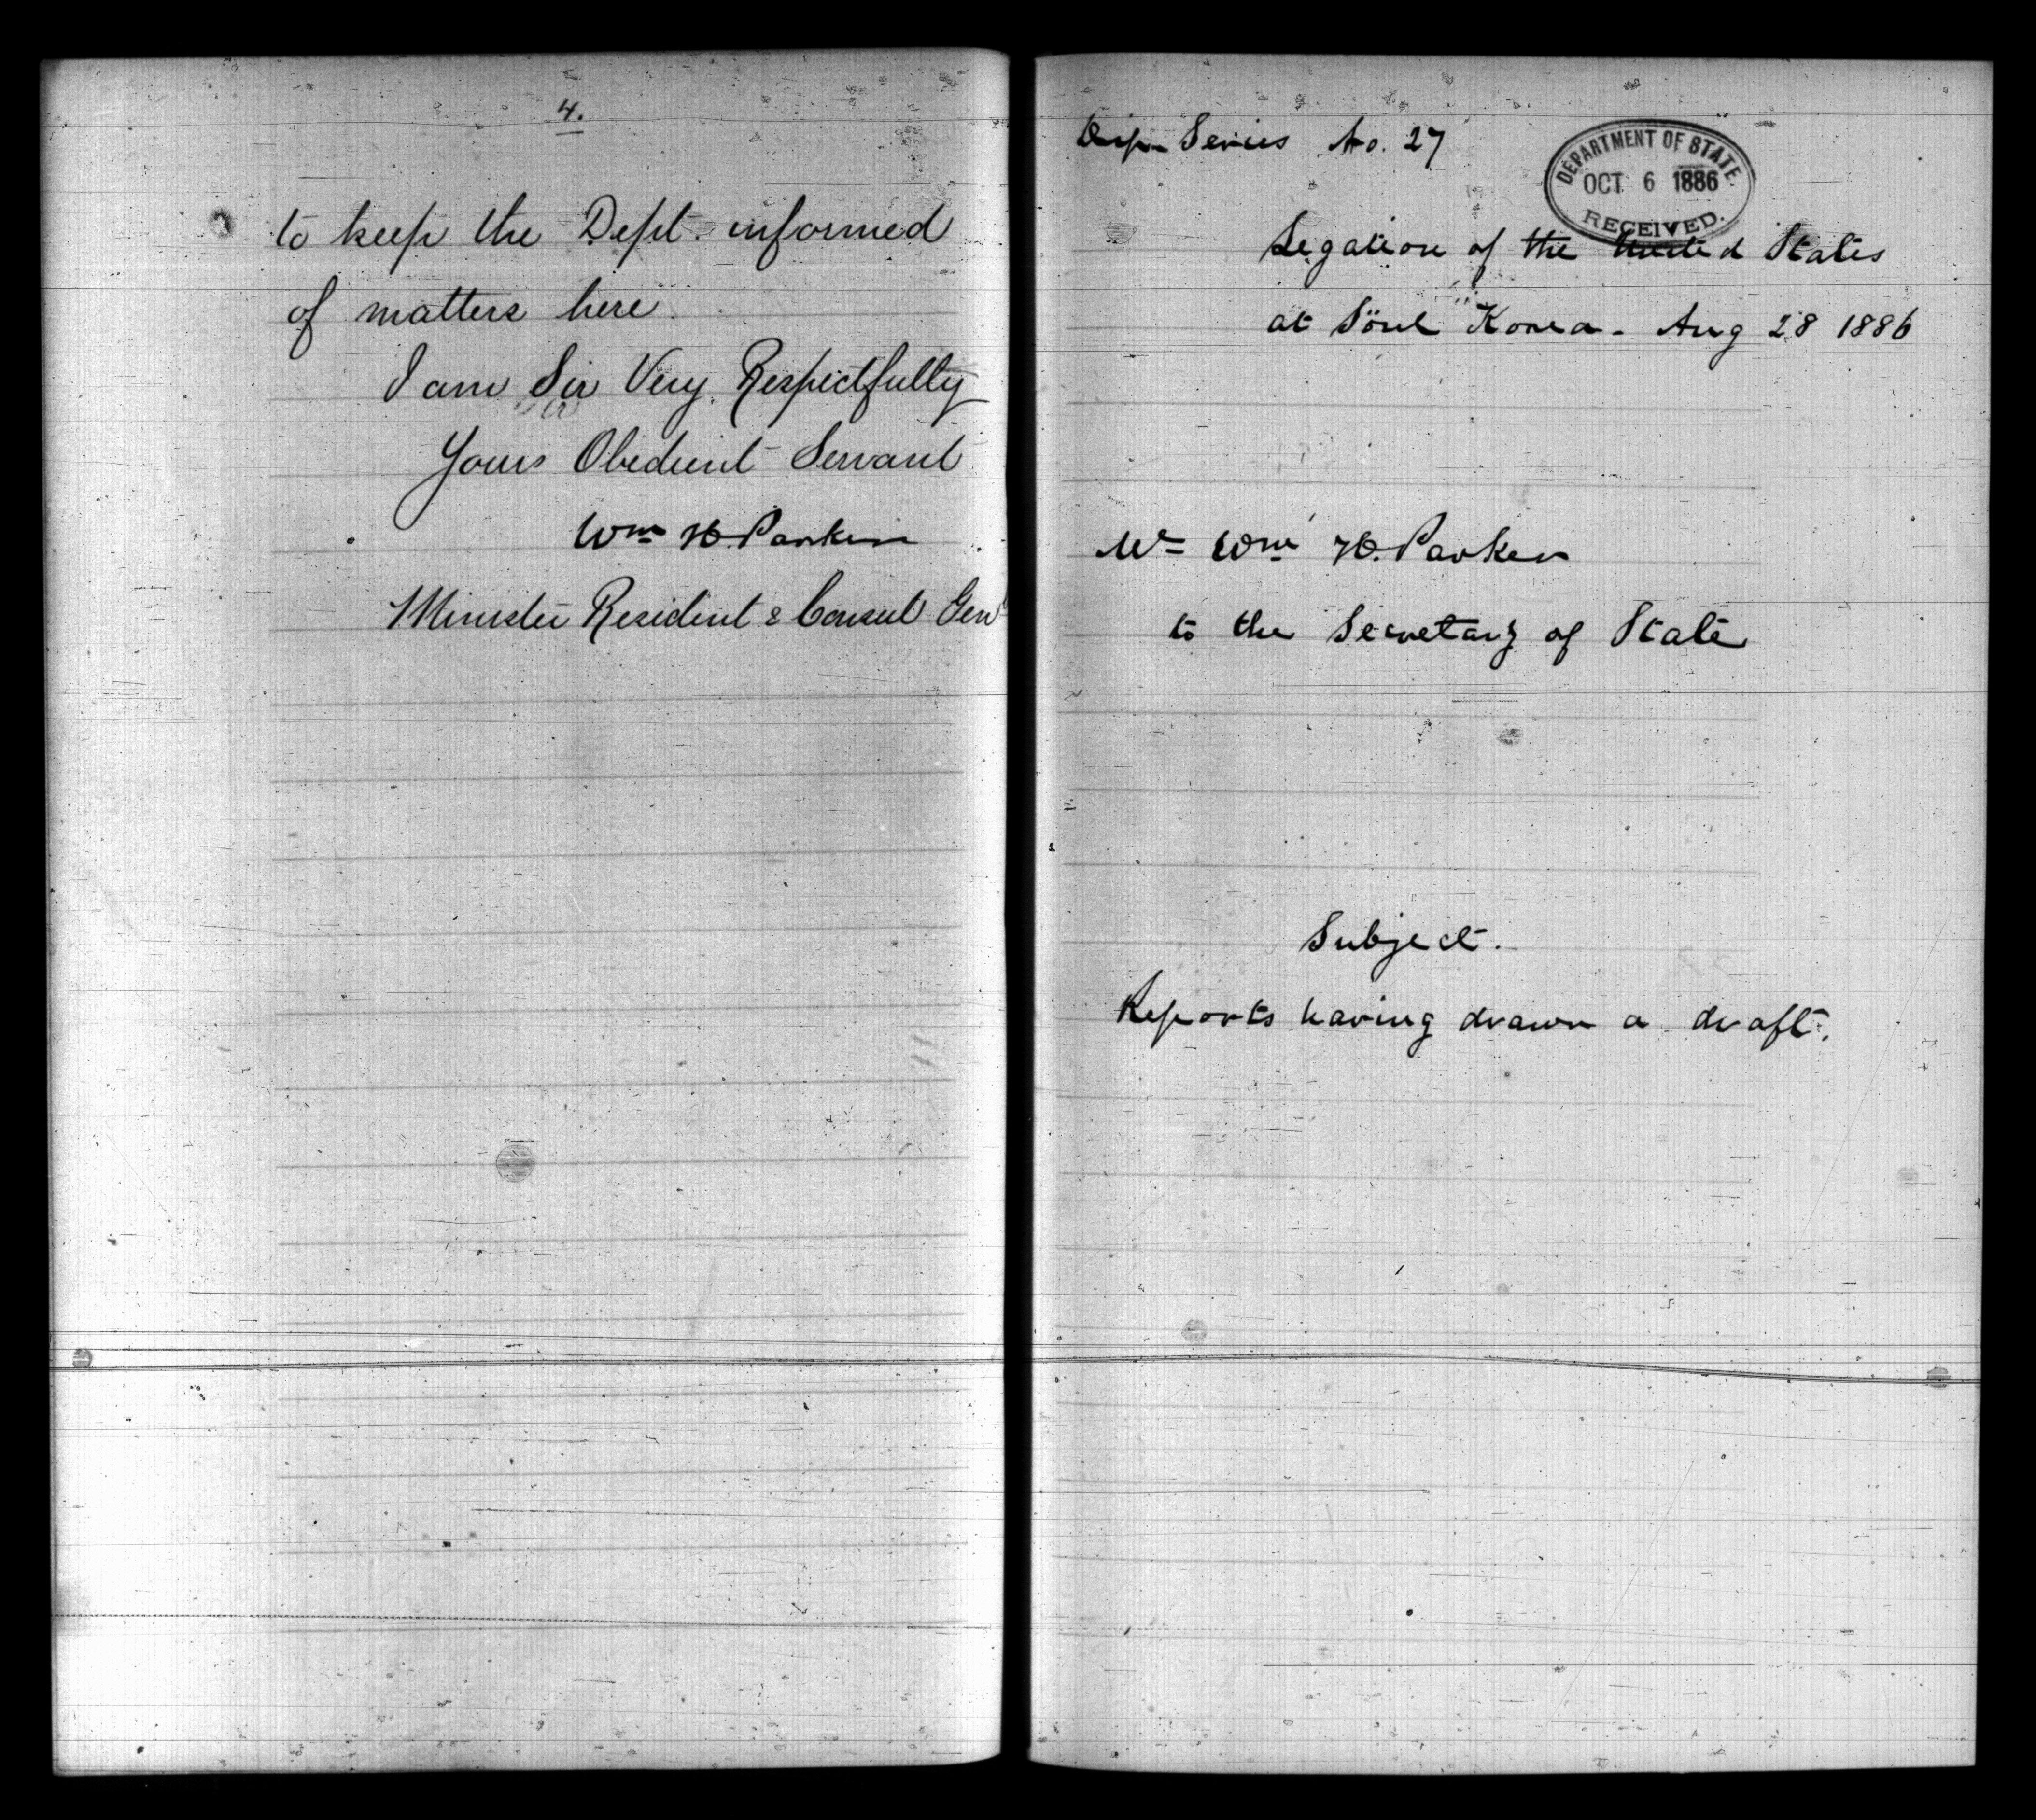 4.
to keep the Dept. informed
of matters here.
I am Sir Very Respectfully
Yours Obedient Servant
Wm H. Parker
Minister Resident & Consul Genl
Dip. Series No. 27
DEPARTMENT OF STATE.
OCT 6 1886
RECEIVED.
Legation of the United States
at Söul Korea - Aug 28 1886
Mr Wm H. Parker
to the Secretary of State
Subject.
Reports having drawn a draft.